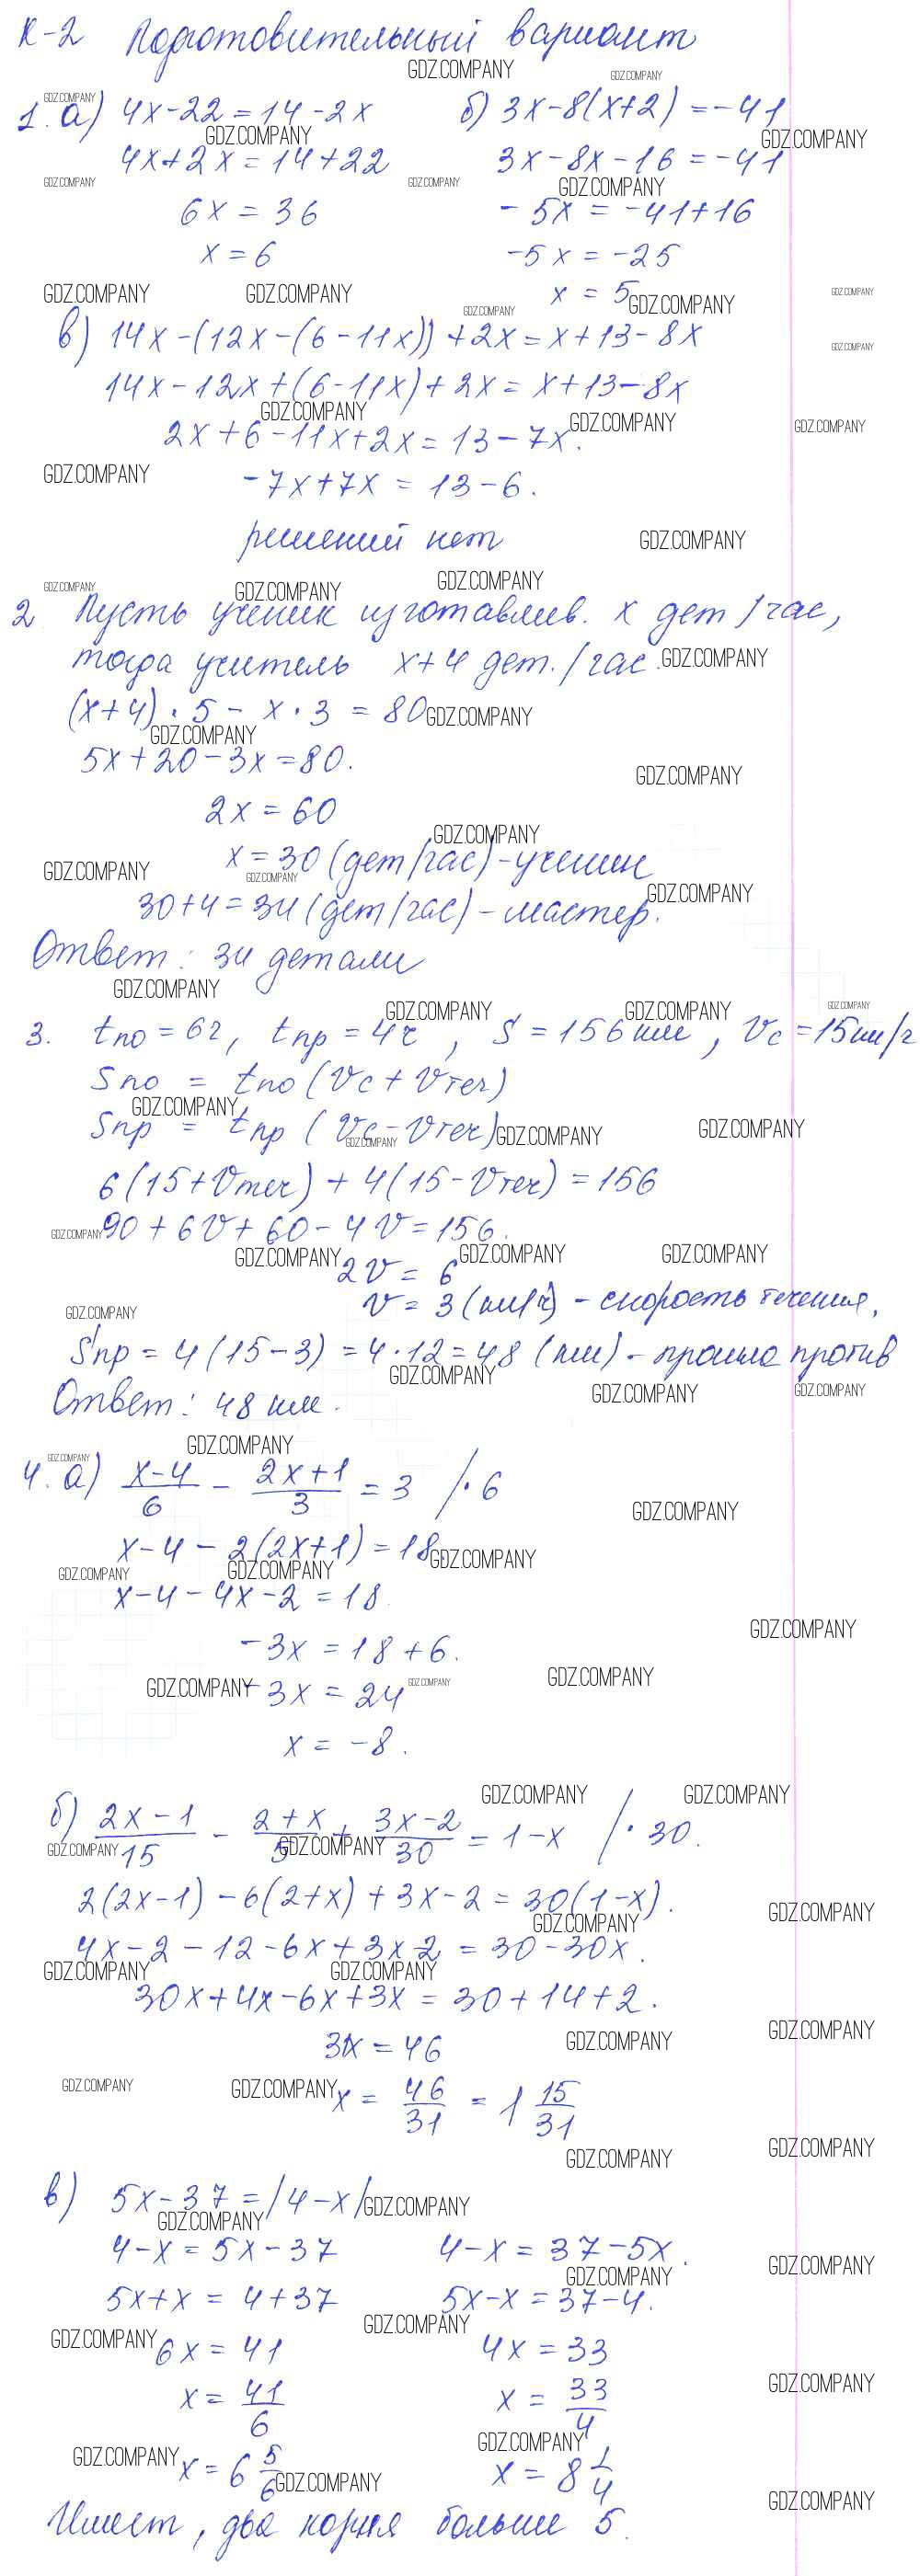 К-2 Подготовительный вариант
1. а) 4x-22=14-2x
4x+2x=14+22
6x=36
x=6
б) 3x-8(x+2)=-41
3x-8x-16=-41
-5x=-41+16
-5x=-25
x=5
в) 14x-(12x-(6-11x))+2x=x+13-8x
14x-12x+(6-11x)+2x=x+13-8x
2x+6-11x+2x=13-7x.
-7x+7x=13-6.
решений нет
2. Пусть ученик изготавлив. x дет/час,
тогда учитель x+4 дет./час.
(x+4)·5-x·3=80
5x+20-3x=80.
2x=60
x=30 (дет/час)-ученик
30+4=34 (дет/час)-мастер.
Ответ: 34 детали
3. tпо=6ч, tпр=4ч, S=156км, Vc=15км/ч
Sпо = tпо(Vc+Vтеч)
Sпр = tпр(Vc-Vтеч)
6(15+Vтеч)+4(15-Vтеч)=156
90+6V+60-4V=156.
2V=6
V=3 (км/ч)-скорость течения.
Sпр=4(15-3)=4·12=48 (км)-прошла против
Ответ: 48 км.
4. а) (x-4)/6 - (2x+1)/3 = 3 /·6
x-4-2(2x+1)=18.
x-4-4x-2=18.
-3x=18+6.
-3x=24
x=-8.
б) (2x-1)/15 - (2+x)/5 + (3x-2)/30 = 1-x /·30.
2(2x-1)-6(2+x)+3x-2=30(1-x).
4x-2-12-6x+3x-2=30-30x.
30x+4x-6x+3x=30+14+2.
31x=46
x = 46/31 = 1 15/31
в) 5x-37=/4-x/
4-x=5x-37
5x+x=4+37
6x=41
x=41/6
x=6 5/6
4-x=37-5x.
5x-x=37-4.
4x=33
x=33/4
x=8 1/4
Имеет, два корня больше 5.
GDZ.COMPANY